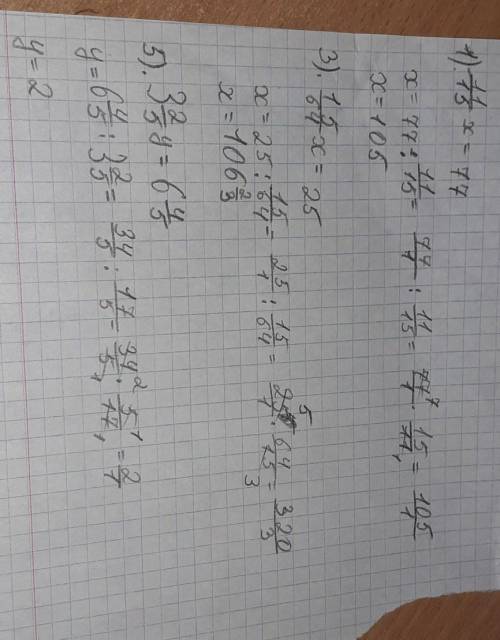 1). 11/15 x = 77
x = 77 : 11/15 = 77/1 : 11/15 = 77/1 · 15/11 = 105/1
x = 105
3). 15/64 x = 25
x = 25 : 15/64 = 25/1 : 15/64 = 25/1 · 64/15 = 320/3
x = 106 2/3
5). 3 2/5 y = 6 4/5
y = 6 4/5 : 3 2/5 = 34/5 : 17/5 = 34/5 · 5/17 = 2/1
y = 2